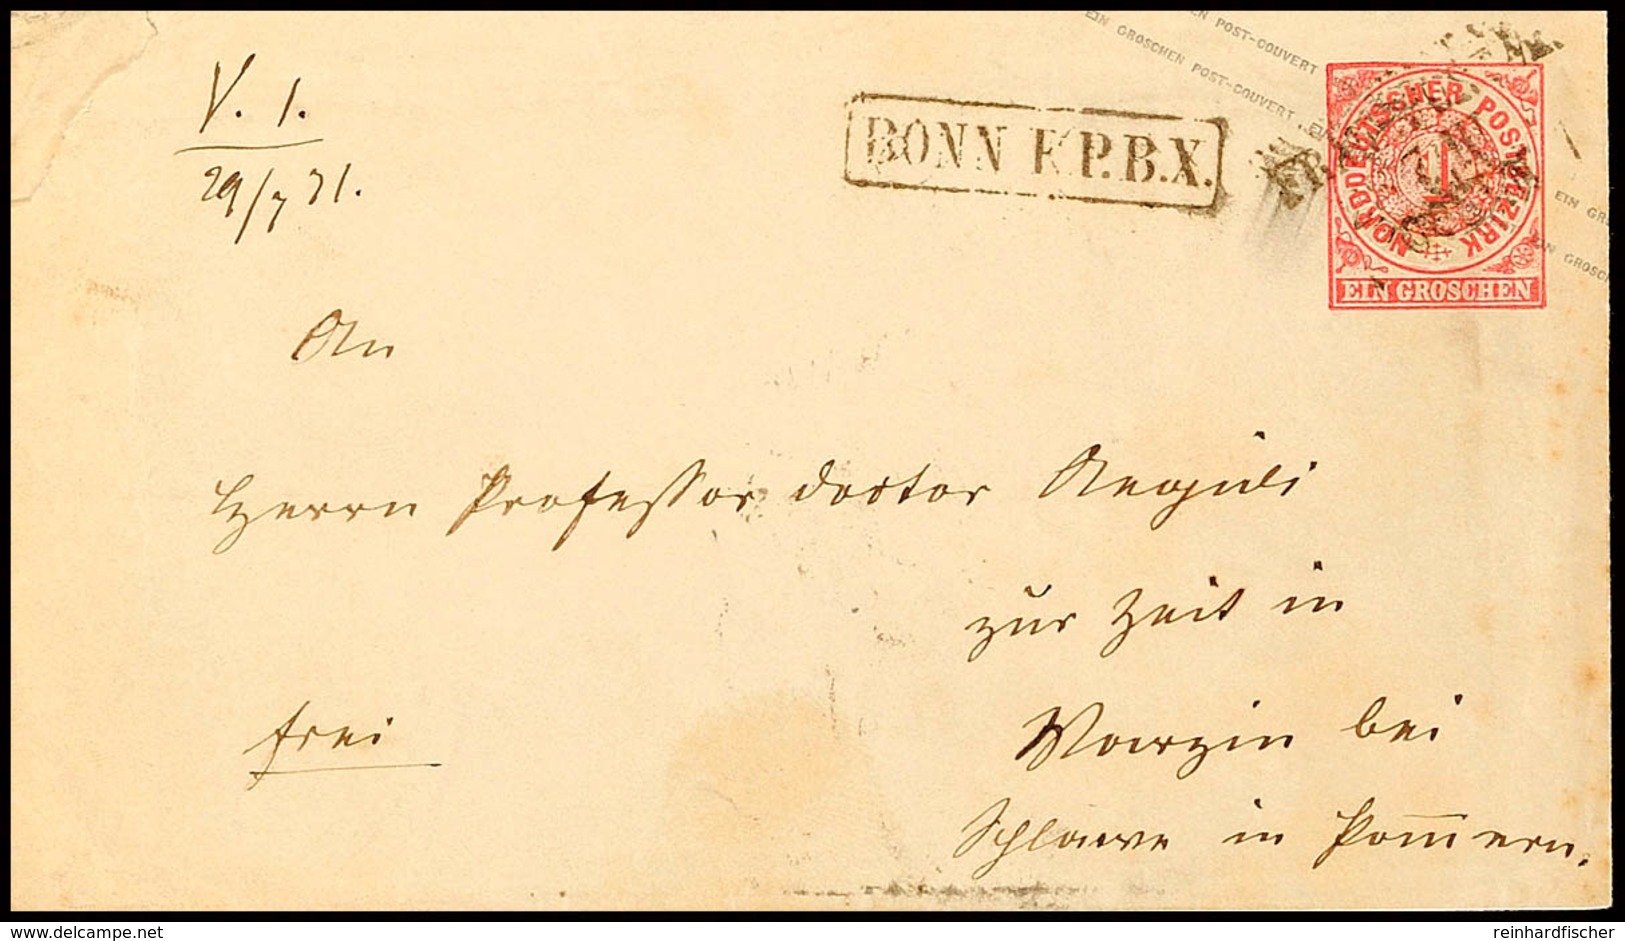 V. 1.
29/7 71.
EIN GROSCHEN POST-COUVERT
EN POST-COUVERT
BONN F.P.B.X.
NORDDEUTSCHER POSTBEZIRK
1
EIN GROSCHEN
EIN GROSCHEN
An
Herrn Professor doctor Aegidi
zur Zeit in
frei
Warzin bei
Schlawe in Pommern.
delcampe.net
reinhardfischer